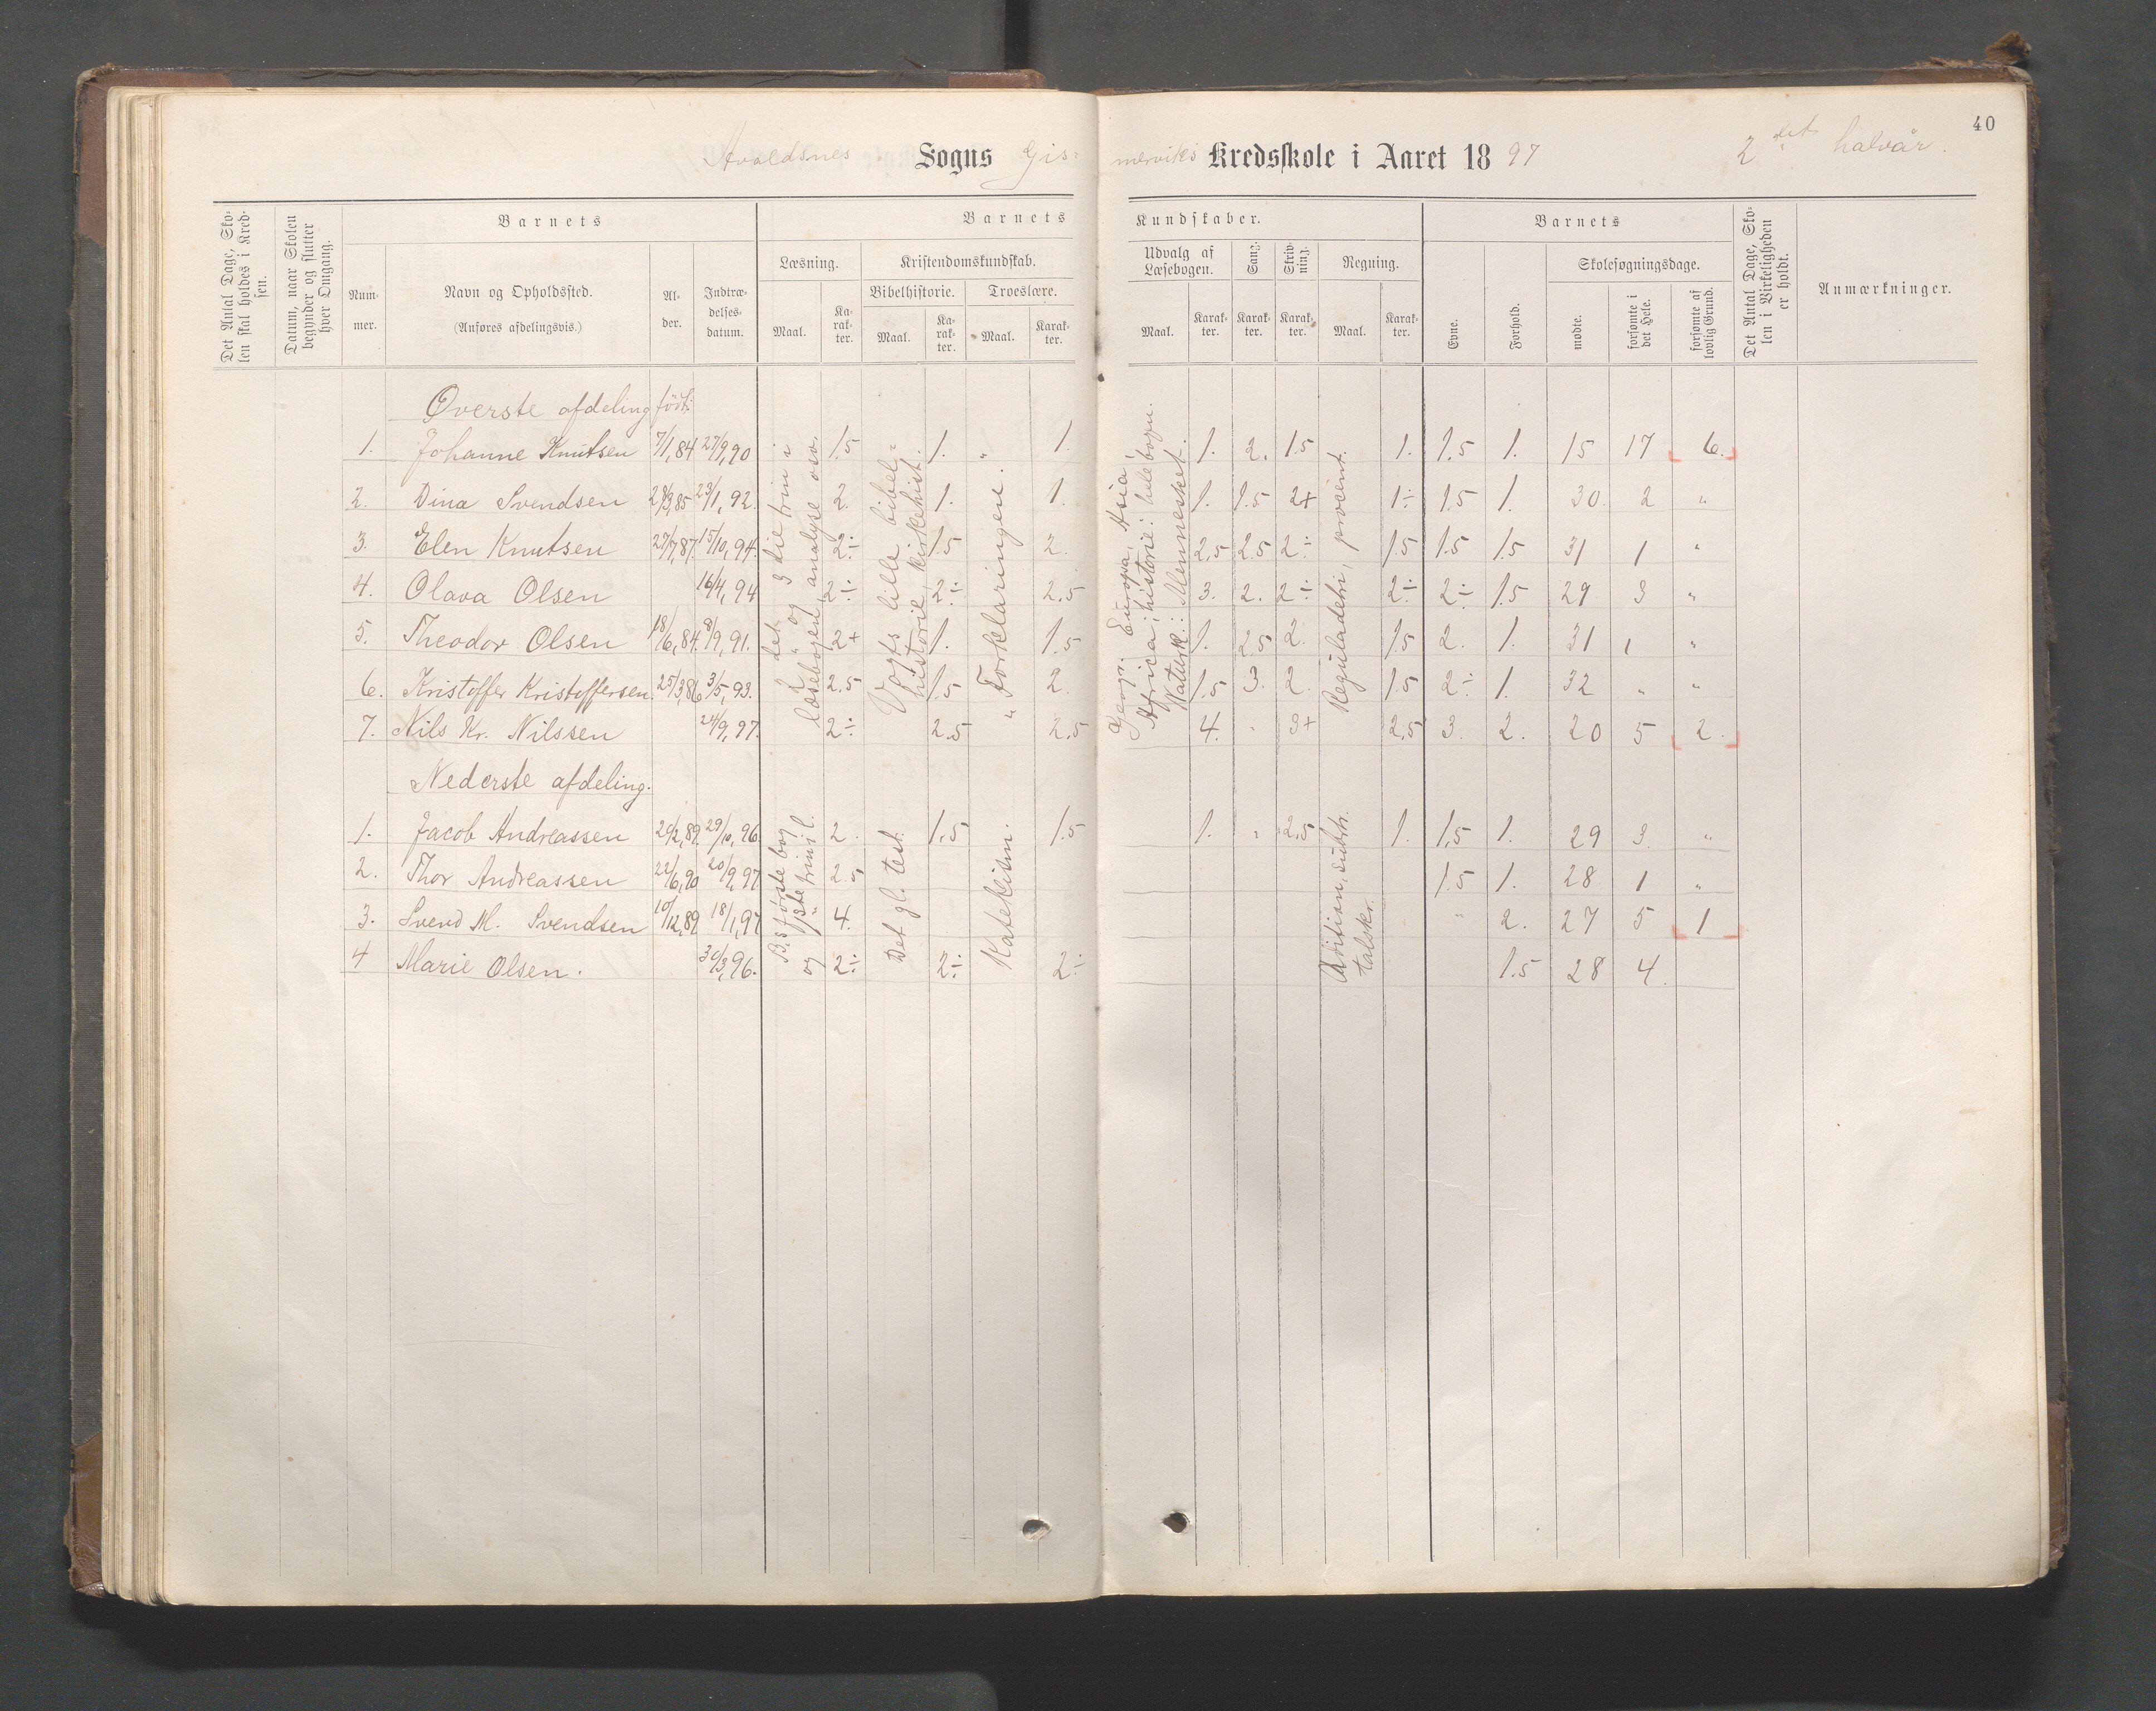 40
Avaldsnes Sogns Gis- merviks Kredsskole i Aaret 1897 2det halvår.
Det Antal Dage, Sko-
len skal holdes i Kred-
sen.
Datum, naar Skolen
begynder og slutter
hver Omgang.
Barnets
Num-
mer.
Navn og Opholdssted.
(Anføres afdelingsvis.)
Al-
der.
Indtræ-
delses-
datum.
Barnets Kundskaber.
Læsning.
Maal.
Ka-
rak-
ter.
Kristendomskundskab.
Bibelhistorie.
Maal.
Ka-
rak-
ter.
Troeslære.
Maal.
Karak-
ter.
Udvalg af
Læsebogen.
Maal.
Karak-
ter.
Sang.
Karak-
ter.
Skriv-
ning.
Karak-
ter.
Regning.
Maal.
Karak-
ter.
Barnets
Evne.
Forhold.
Skolesøgningsdage.
mødte.
forsømte i
det Hele.
forsømte af
lovlig Grund.
Det Antal Dage, Sko-
len i Virkeligheden
er holdt.
Anmærkninger.
Øverste afdeling født:
1. Johanne Knutsen 7/1,84 27/9,90 1.5 1. " 1. 1. 2. 1.5 1. 1.5 1. 15 17 6.
2. Dina Svendsen 28/3,85 23/1,92. 2. 1. 1. 1. 1.5 2+ 1÷ 1.5 1. 30. 2 "
3. Elen Knutsen 27/7,87. 15/10,94. 2÷ 1.5 2. 2.5 2.5 2÷ 1.5 1.5 1.5 31 1 "
4. Olava Olsen 16/4,94 2÷ 2÷ 2.5 3. 2. 2÷ 2÷ 2÷ 1.5 29 3 "
5. Theodor Olsen 18/6,84. 8/9,91. 2+ 1. 1.5 1. 2.5 2. 1.5 2. 1. 31 1 "
6. Kristoffer Kristoffersen. 25/3,86 3/5,93. 2.5 1.5 2. 1.5 3. 2. 1.5 2÷ 1. 32 " "
7. Nils Kr. Nilssen 24/9,97. 2÷ 2.5 2.5 4. " 3+ 2.5 3. 2. 20 5 2.
2det og 3die trin i
læsebogen, analyse osv.
Vogts lille bibel-
historie, kirkehist.
" Forklaringen.
Geogr. Europa, Asia,
Africa; historie: hele bogen.
Naturk.: Mennesket.
Reguladetri, procent.
Nederste afdeling.
1. Jacob Andreassen 20/2,89. 29/10,96. 2. 1.5 1.5 1. " 2.5 1. 1.5 1. 29 3. "
2. Thor Andreassen 22/6,90 20/9,97. 2.5 1.5 1. 28 1 "
3. Svend M. Svendsen 10/12,89 18/1,97 4. " 2. 27 5 1
4 Marie Olsen. 30/3,96. 2÷ 2÷ 2÷ 1.5 28 4.
første bog
og 1ste trin i l.
Det gl. test.
Katekism.
Adition, subtr.
talskr.